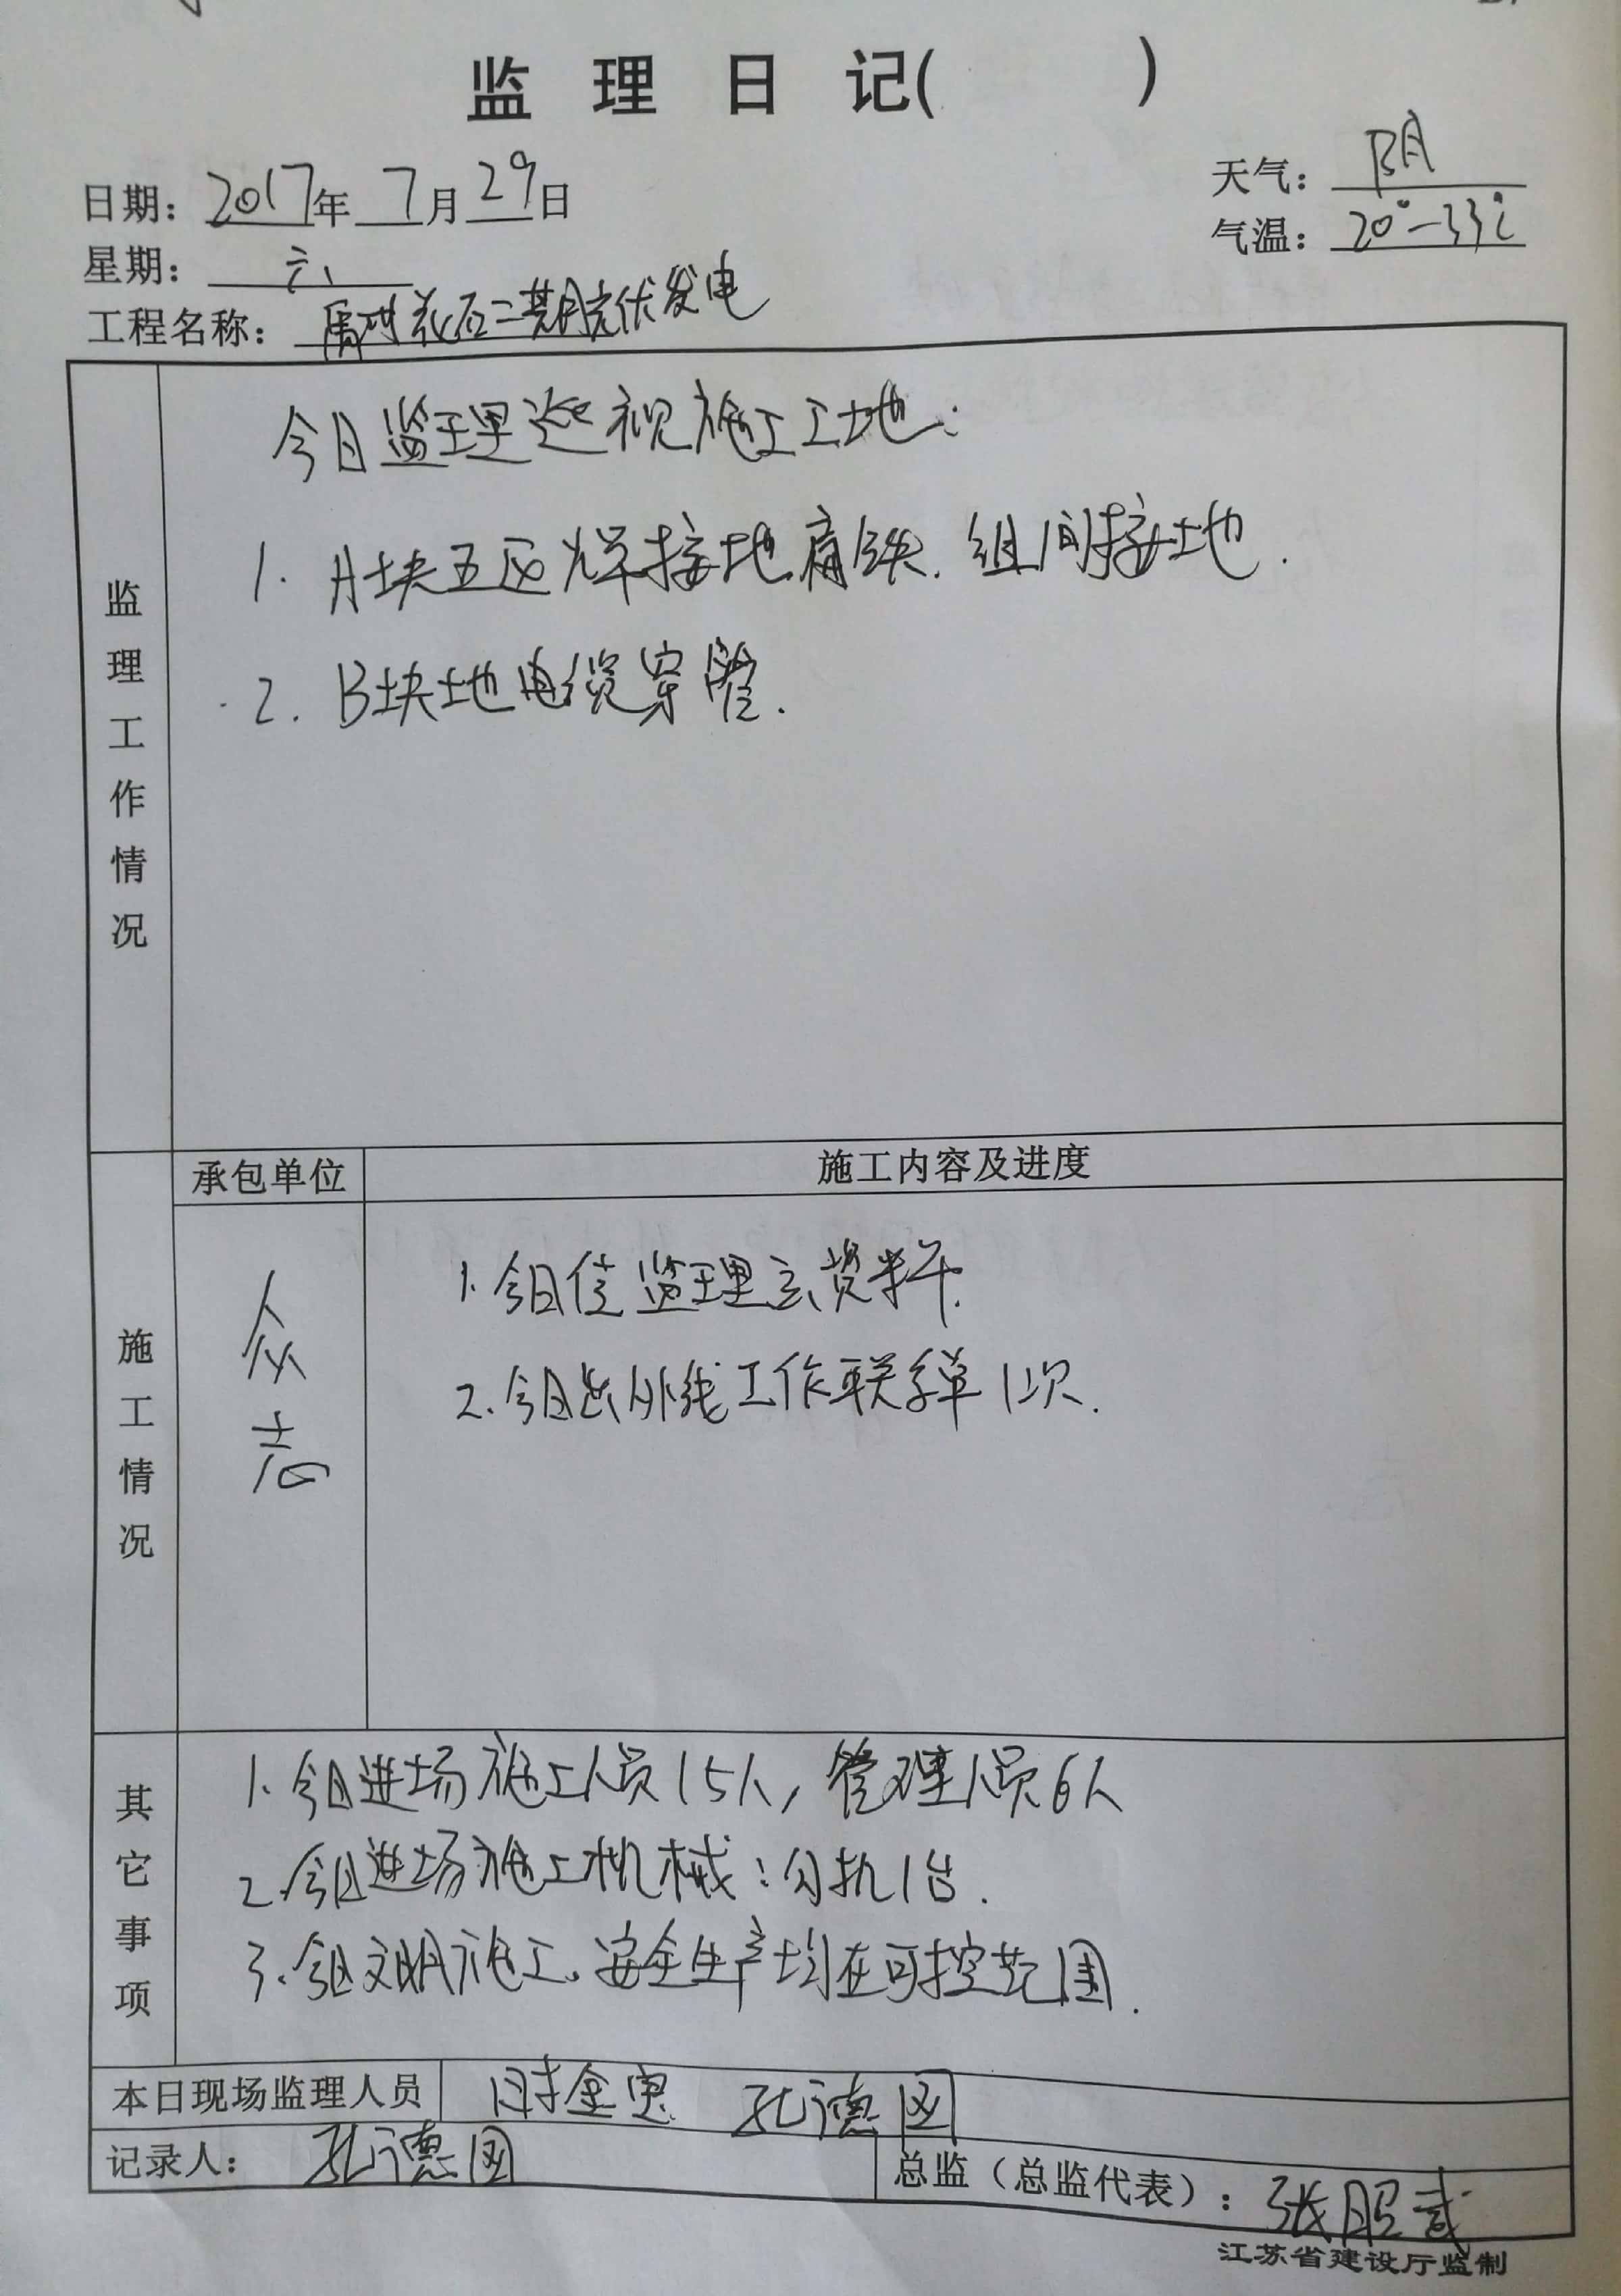 监理日记( )
日期：2017年7月29日
天气：阴
气温：20°-33℃
星期：六
工程名称：禹州花石二期光伏发电
监理工作情况
今日监理巡视施工工地：
1. A块五区焊接地扁铁.组间接地.
2. B块地电缆穿管.
施工情况
承包单位
施工内容及进度
众志
1.今日监理资料.
2.今日出外线工作联系单1次.
其它事项
1.今日进场施工人员15人,管理人员6人
2.今日进场施工机械:勾机1台.
3.今日文明施工.安全生产均在可控范围.
本日现场监理人员 时金 孔德
记录人：孔德
总监（总监代表）：张照武
江苏省建设厅监制